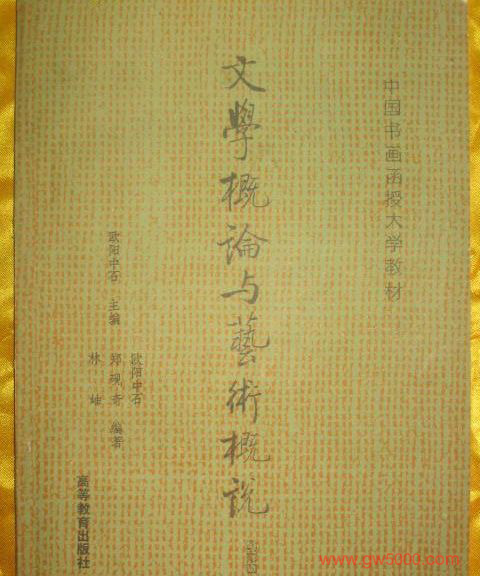 中国书画函授大学教材
文學概論与藝術概說
欧阳中石 主编
欧阳中石
郑砚奇 编著
林岫
高等教育出版社
www.gw5003.com